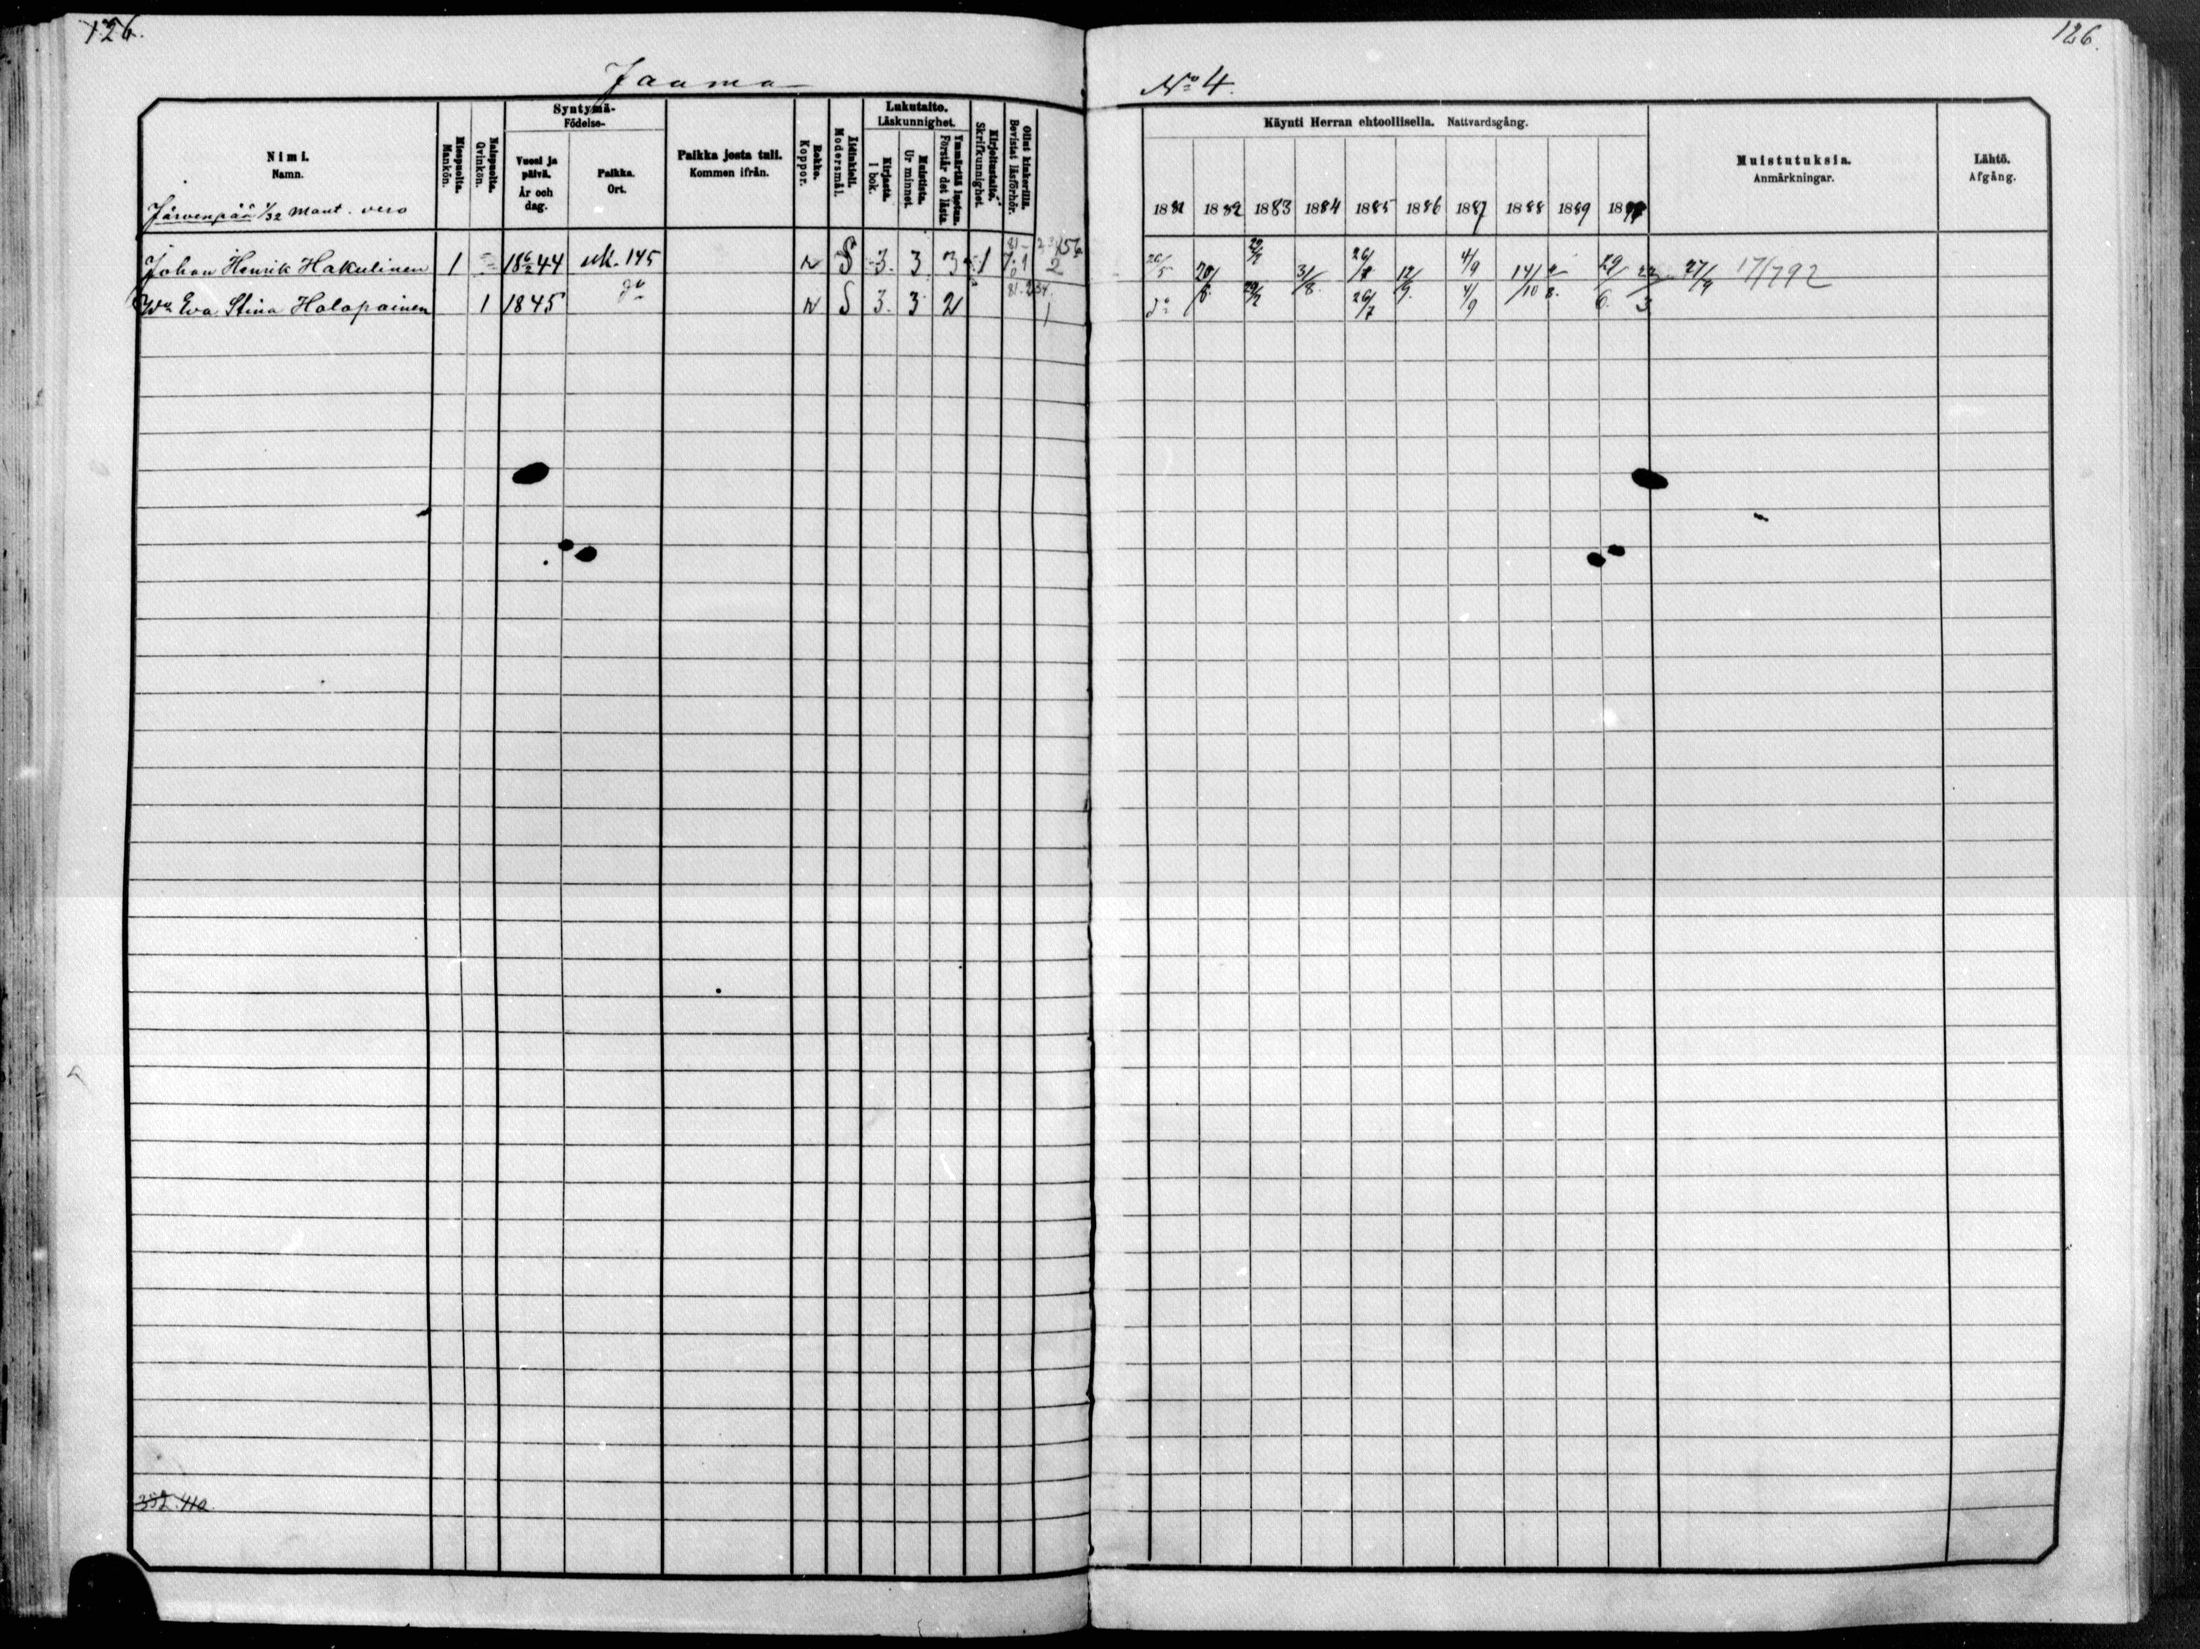 126.
126.
Jaama
No 4.
Nimi.
Namn.
Järvenpää 1/32 mant. vero
Miespuolta.
Mankön.
Naispuolta.
Qvinkön.
Syntymä-
Födelse-
Vuosi ja
päivä.
År och
dag.
Paikka.
Ort.
Paikka josta tuli.
Kommen ifrån.
Rokko.
Koppor.
Äidinkieli.
Modersmål.
Lukutaito.
Läskunnighet.
Kirjasta.
I bok.
Muistista.
Ur minnet.
Ymmärtää luetun.
Förstår det lästa.
Kirjoitustaito.
Skrifkunnighet.
Ollut kinkerillä.
Bevistat läsförhör.
Käynti Herran ehtoollisella. Nattvardsgång.
1881 1882 1883 1884 1885 1886 1887 1888 1889
Muistutuksia.
Anmärkningar.
Lähtö.
Afgång.
Johan Henrik Hakulinen 1 18 6/2 44 uk. 145 v S 3. 3 3 1 2 26/5 20/8 29/7 31/8. 26/7 12/9. 4/9 14/10 29/6 27/9 17/792
Wo Eva Stina Holopainen 1 1845 do v S 3. 3 2 1 do 29/7 26/7 4/9
382. 410.